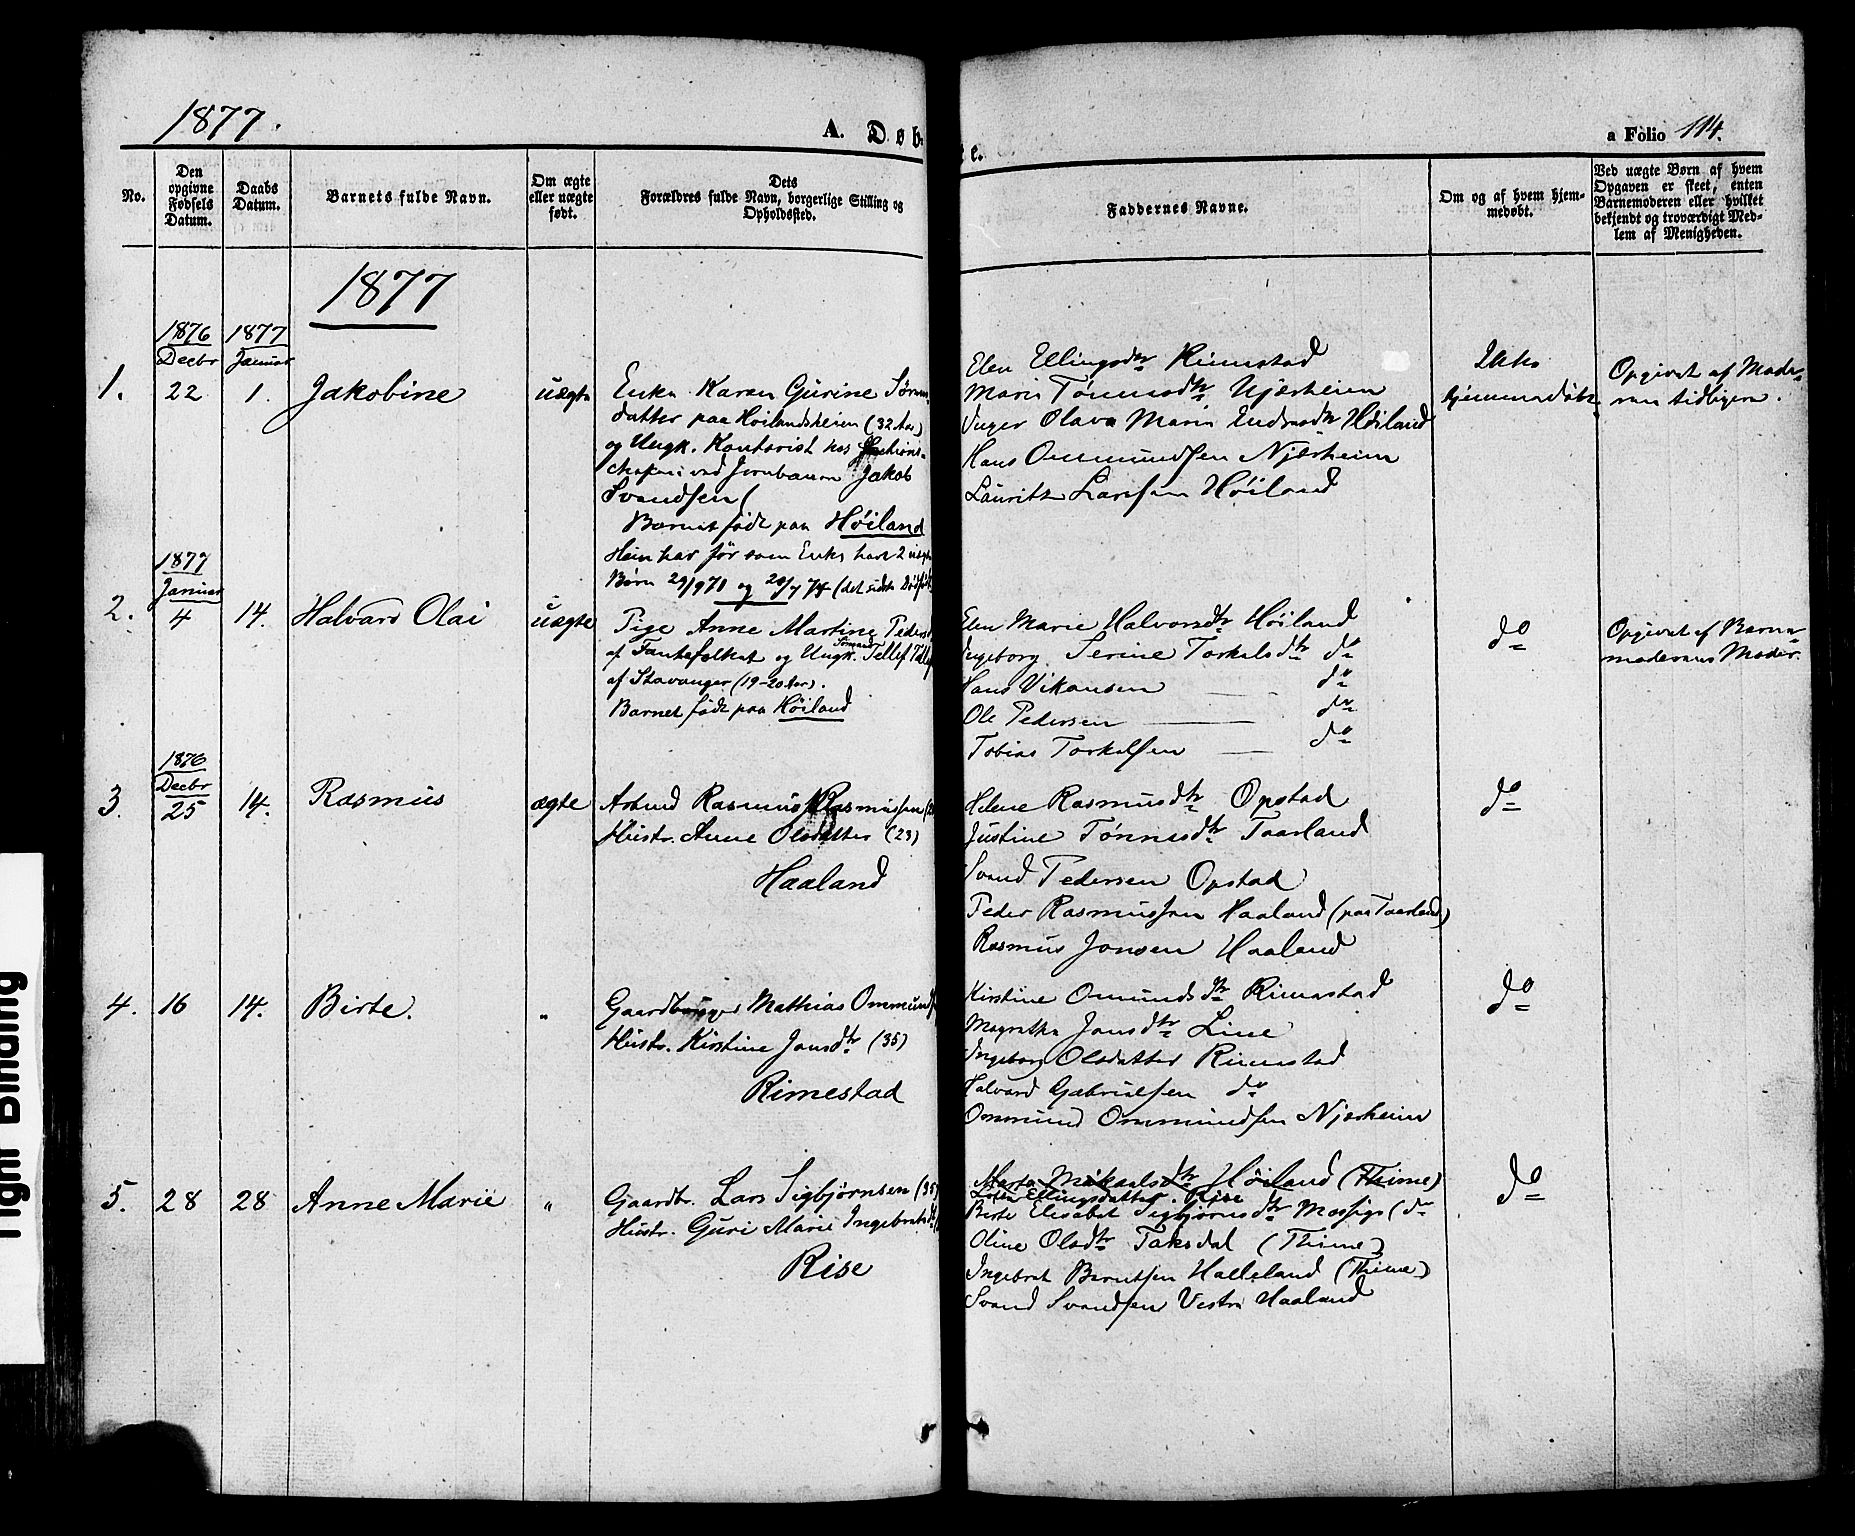 1877.
A. Døb
e.
a Folio 114.
No.
Den opgivne Fødsels Datum.
Daabs Datum.
Barnets fulde Navn.
Om ægte eller uægte født.
Dets Forældres fulde Navn, borgerlige Stilling og Opholdssted.
Faddernes Navne.
Om og af hvem hjemmedøbt.
Ved uægte Børn af hvem Opgaven er skeet, enten Barnemoderen eller hvilket bekjendt og troværdigt Medlem af Menigheden.
1877
1876 1877
Decbr Januar
1. 22 1. Jakobine uægte
Enke Karen Gurine Søren-
datter paa Høilandsheien (32 Aar)
og Ungk. Kontorist hos
ved Jernbanen Jakob
Svendsen
Barnet født paa Høiland
har før som Enke havt 2 uægte
Børn 29/9 71 og 28/7 74 (det sidste
Elen Ellingsdtr Rimestad
Marie Tønnesdtr Njærheim
Olava Marie Endresdtr Høiland
Hans Ommundsen Njærheim
Lauritz Larsen Høiland
Ikke
hjemmedøbt
Opgivet af Mode-
ren tidligere.
1877
Januar
2. 4 14. Halvard Olai uægte
Pige Anne Martine Peders
af Fantefolket og Ungk. Sømand Tellef
af Stavanger (19-20 Aar).
Barnet født paa Høiland
Elen Marie Halvorsdtr Høiland
Ingeborg Serine Torkelsdtr do
Hans Vikansen do
Ole Pedersen do
Tobias Torkelsen do
do
Opgivet af Barne-
moderens Moder.
1876
Decbr
3. 25 14. Rasmus ægte
Arbmd Rasmus Rasmussen
Hustr. Anne Olsdatter (23)
Haaland
Helene Rasmusdtr Opstad
Justine Tønnesdtr Taarland
Svend Pedersen Opstad
Peder Rasmussen Haaland (paa Taarland)
Rasmus Jonsen Haaland
do
4. 16 14. Birte. "
Gaardbruger Mathias Ommunds
Hustr. Kirstine Jonsdtr (35)
Rimestad
Kirstine Omundsdtr Rimestad
Magrethe Jonsdtr Line
Ingeborg Olsdatter Rimestad
Halvard Gabrielsen do
Ommund Ommundsen Njærheim
do
5. 28 28 Anne Marie "
Gaardbr. Lars Sigbjørnsen (35)
Hustr. Guri Marie Ingebretsdt
Rise
Marta Mikaelsdtr Høiland (Thime)
Ellingsdatter. Rise
Birte Elisabet Sigbjørnsdtr Mossige (do
Oline Olsdtr Taksdal (Thime)
Ingebret Berntsen Halleland (Thime)
Svend Svendsen Vestre Haaland
do
Tight Binding